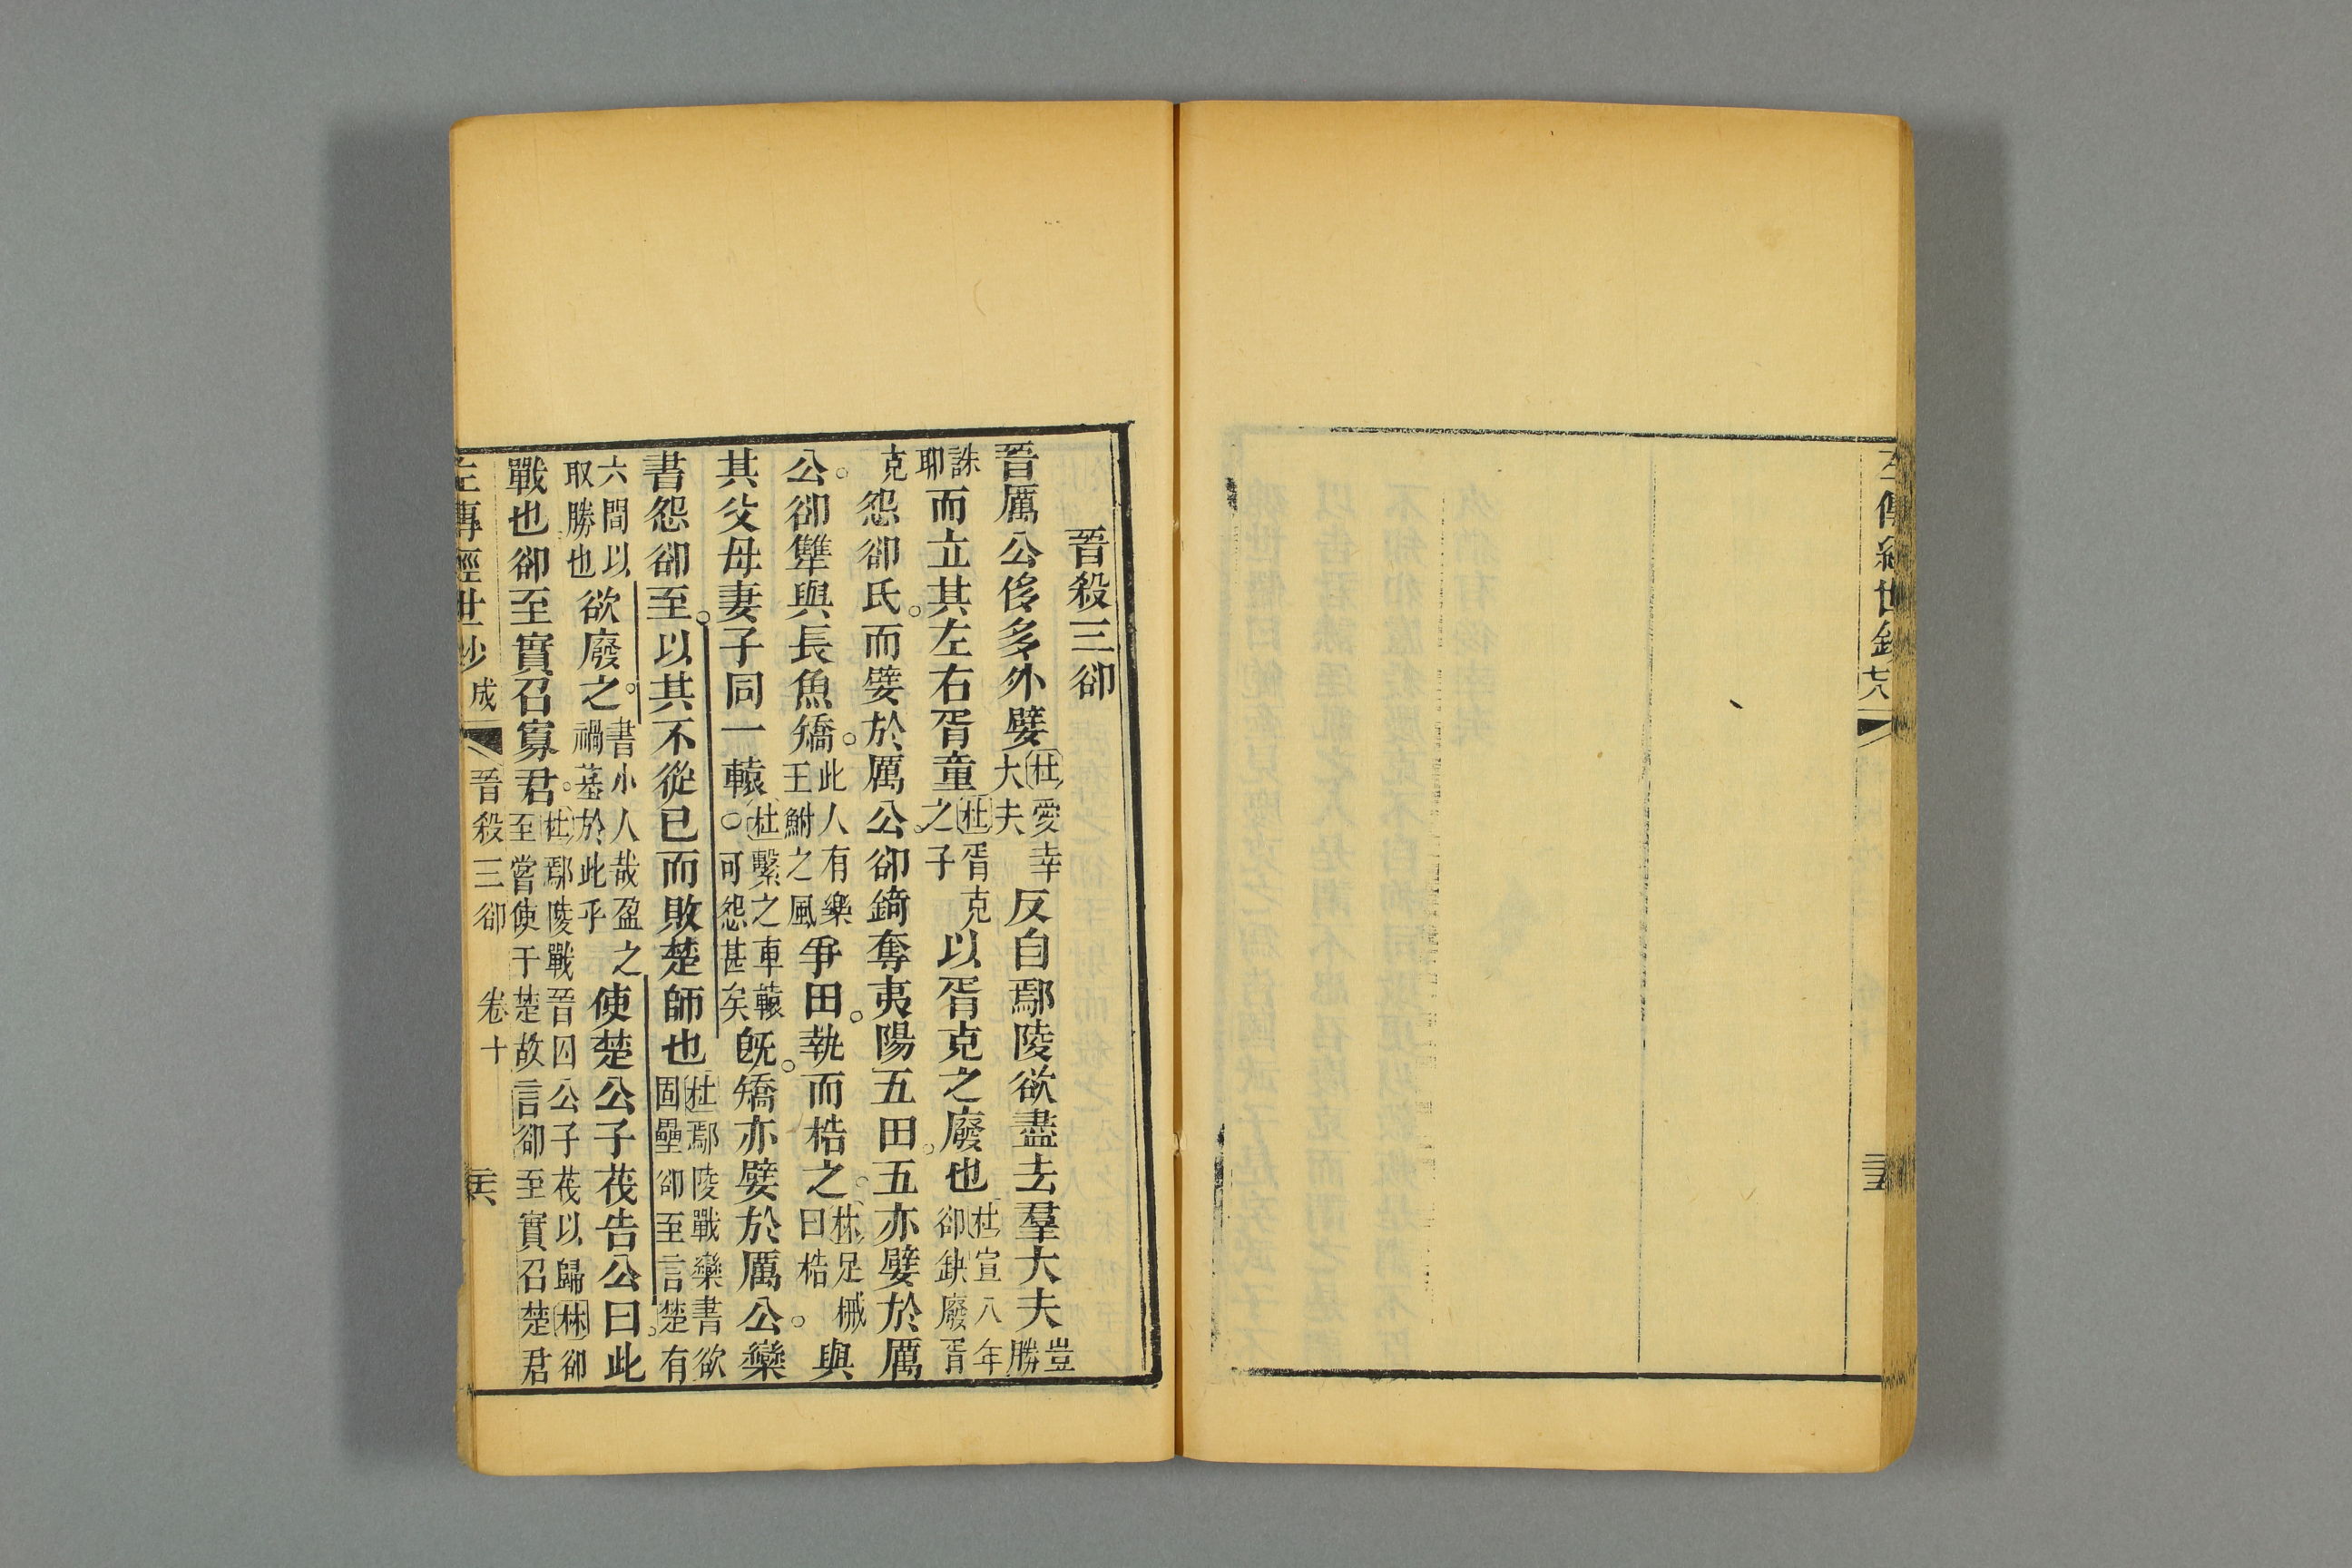 左傳經世鈔
晉殺三郤
晉厲公侈多外嬖杜愛幸大夫反自鄢陵欲盡去羣大夫豈勝
誅耶而立其左右胥童杜胥克之子以胥克之廢也杜宣八年郤缺廢胥
克怨郤氏而嬖於厲公郤錡奪夷陽五田五亦嬖於厲
公郤犨與長魚矯此人有樂王鮒之風爭田執而梏之林足械曰梏與
其父母妻子同一轅杜繫之車轅可怨甚矣旣矯亦嬖於厲公欒
書怨郤至以其不從已而敗楚師也杜鄢陵戰欒書欲固壘郤至言楚有
六間以取勝也欲廢之書小人哉盈之禍基於此乎使楚公子茷告公曰此
戰也郤至實召寡君杜鄢陵戰晉囚公子茷以歸林郤至嘗使于楚故言郤至實召楚君
左傳經世鈔 成 晉殺三郤 卷十